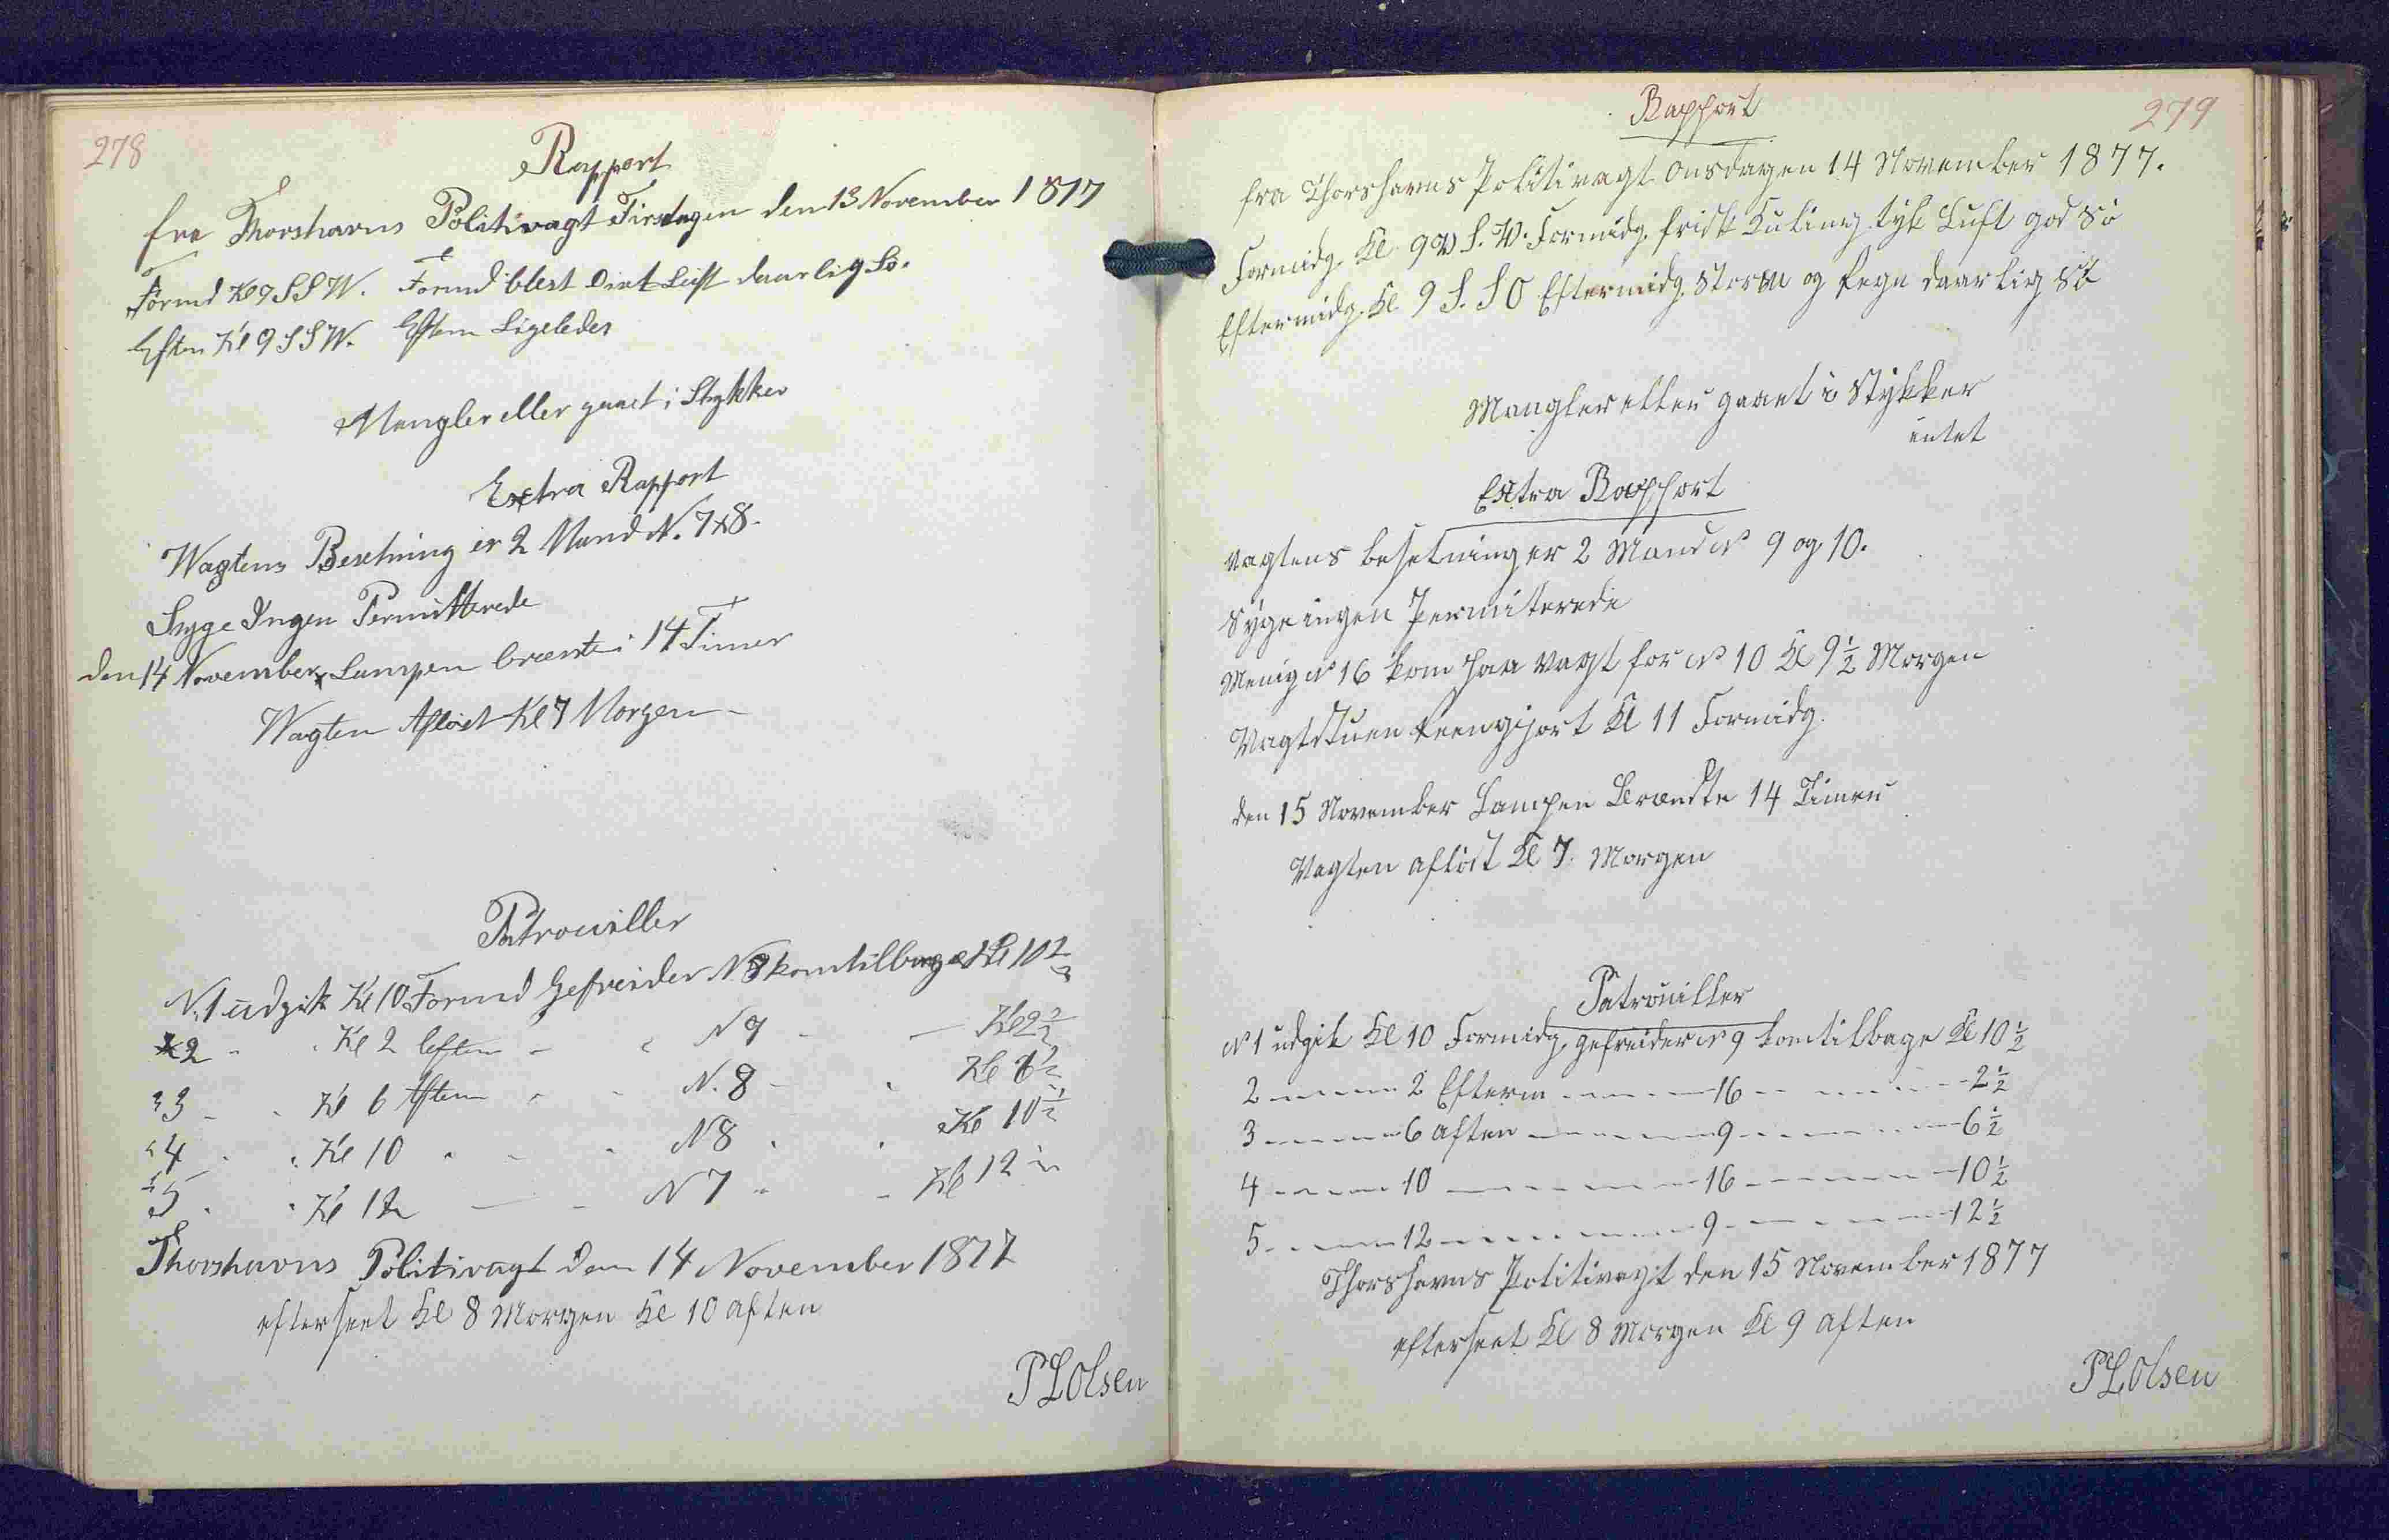 278
Rapport
fra Thorshavns Politivagt Tirsdagen den 13 November 1877
Formd Kl 9 SSW. Formd blest Luft daarlig Sö.
Eftm Kl 9 SSW. Eftm Ligeledes
Mangler eller gaaet i Stykker
Extra Rapport
Wagtens Besetning er 2 Mand N. 7 & 8.
Syge Ingen Permitterede
den 14 November Lampen brændte i 14 Timer
Wagten Afløst Kl 7 Morgen
Patrouiller
N. 1 udgik Kl 10 Formd Gefreider N 8 kom tilbage Kl 10 1/2
2 " " Kl 2 Eftm - " N 9 - - Kl 2 1/2
" 3 - - Kl 6 Aften " - N. 8 - " Kl 6 1/2
" 4 " " Kl 10 " - " N 8 " " Kl 10 1/2
" 5 " " Kl 12 - - N 7 " - Kl 12 1/2
Thorshavns Politivagt den 14 November 1877
efterseet Kl 8 Morgen Kl 10 Aften
P L Olsen
279
Rapport
fra Thorshavns Politivagt Onsdagen 14 November 1877.
Formidg. Kl 9 S. W. Formidg. frisk Kuling tyk Luft god Sö
Eftermidg. Kl 9 S. S O Eftermidg. Storm og Regn daarlig Sö
Mangler eller gaaet i Stykker
intet
Extra Rapport
Vagtens besetning er 2 Mand No 9 og 10.
Syge ingen Permiterede
Menig No 16 kom paa Vagt for No 10 Kl 9 1/2 Morgen
Vagtstuen Reengjort Kl 11 Formidg.
den 15 November Lampen Brændte 14 Timer
Vagten afløst Kl 7. Morgen
Patrouiller
No 1 udgik Kl 10 Formidg. gefreider No 9 kom tilbage Kl 10 1/2
2 ---- 2 Efterm ---- 16 ---- 2 1/2
3 ---- 6 Aften ---- 9 ---- 6 1/2
4 ---- 10 ---- 16 ---- 10 1/2
5 ---- 12 ---- 9 ---- 12 1/2
Thorshavns Politivagt den 15 November 1877
efterseet Kl 8 Morgen Kl 9 Aften
P L Olsen